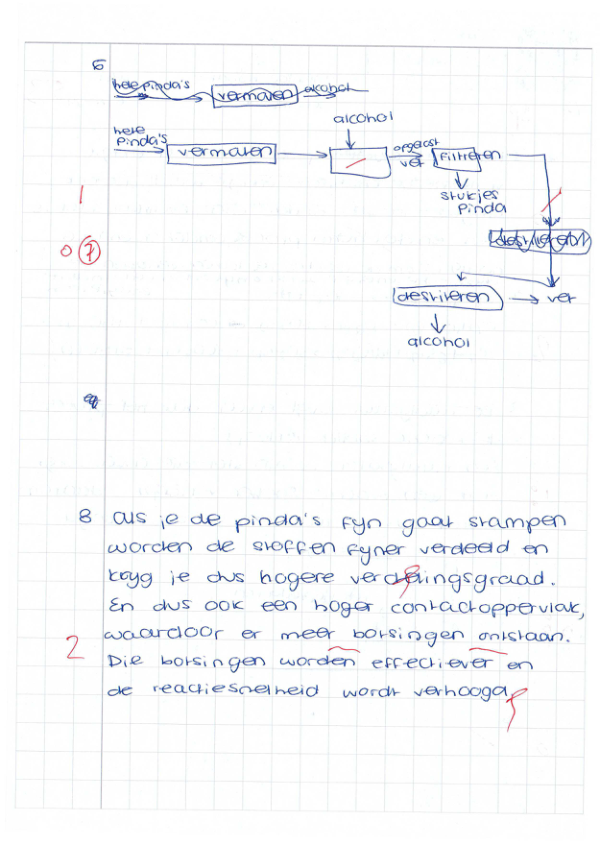 6
hele pinda's vermalen alcohol
alcohol
hele
pinda's vermalen
opgelost
vet filtreren
stukjes
pinda
1
destilleren
0 7
destileren vet
alcohol
8 als je de pinda's fyn gaat stampen
worden de stoffen fyner verdeeld en
kryg je dus hogere verdelingsgraad.
En dus ook een hoger contactoppervlak,
waardoor er meer botsingen ontstaan.
2
Die botsingen worden effectiever en
de reactiesnelheid wordt verhoogd